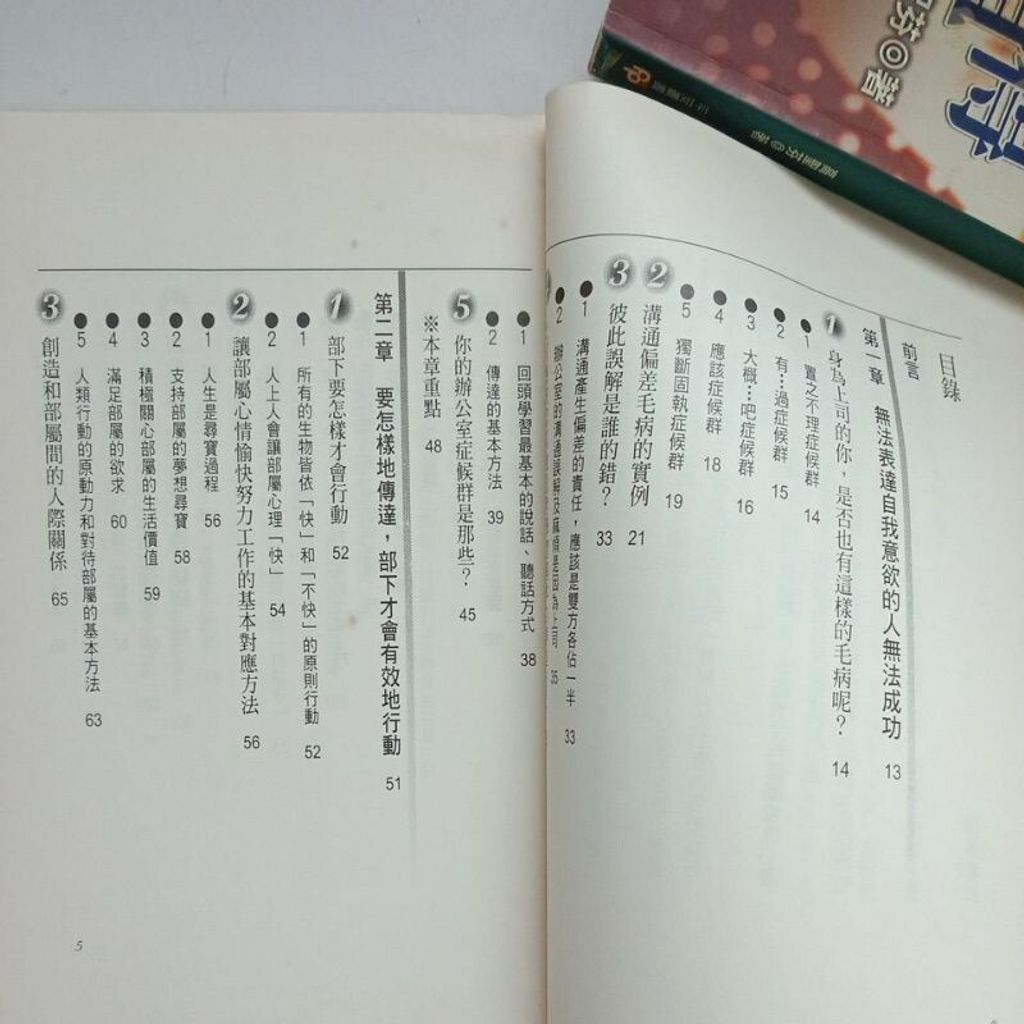 目錄
前言
第一章 無法表達自我意欲的人無法成功 13
1 身為上司的你，是否也有這樣的毛病呢？ 14
●1 置之不理症候群 14
●2 有…過症候群 15
●3 大概…吧症候群 16
●4 應該症候群 18
●5 獨斷固執症候群 19
2 溝通偏差毛病的實例 21
3 彼此誤解是誰的錯？ 33
●1 溝通產生偏差的責任，應該是雙方各佔一半 33
●2 辦公室的溝通誤解及麻煩是因為上司 35
●1 回頭學習最基本的說話、聽話方式 38
●2 傳達的基本方法 39
5 你的辦公室症候群是那些？ 45
※本章重點 48
第二章 要怎樣地傳達，部下才會有效地行動 51
1 部下要怎樣才會行動 52
●1 所有的生物皆依「快」和「不快」的原則行動 52
●2 人上人會讓部屬心理「快」 54
2 讓部屬心情愉快努力工作的基本對應方法 56
●1 人生是尋寶過程 56
●2 支持部屬的夢想尋寶 58
●3 積極關心部屬的生活價值 59
●4 滿足部屬的欲求 60
●5 人類行動的原動力和對待部屬的基本方法 63
3 創造和部屬間的人際關係 65
5
芬◎著